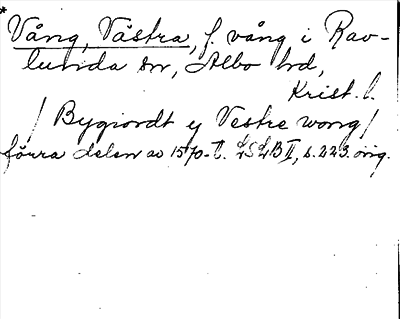 * Vång, Västra, f. vång i Rav-
lunda sn, Albo hd,
Krist. l.
/ Bygiordt ej Vestre wong /
förra delen av 1570-t. LSLB II, s. 223. orig.